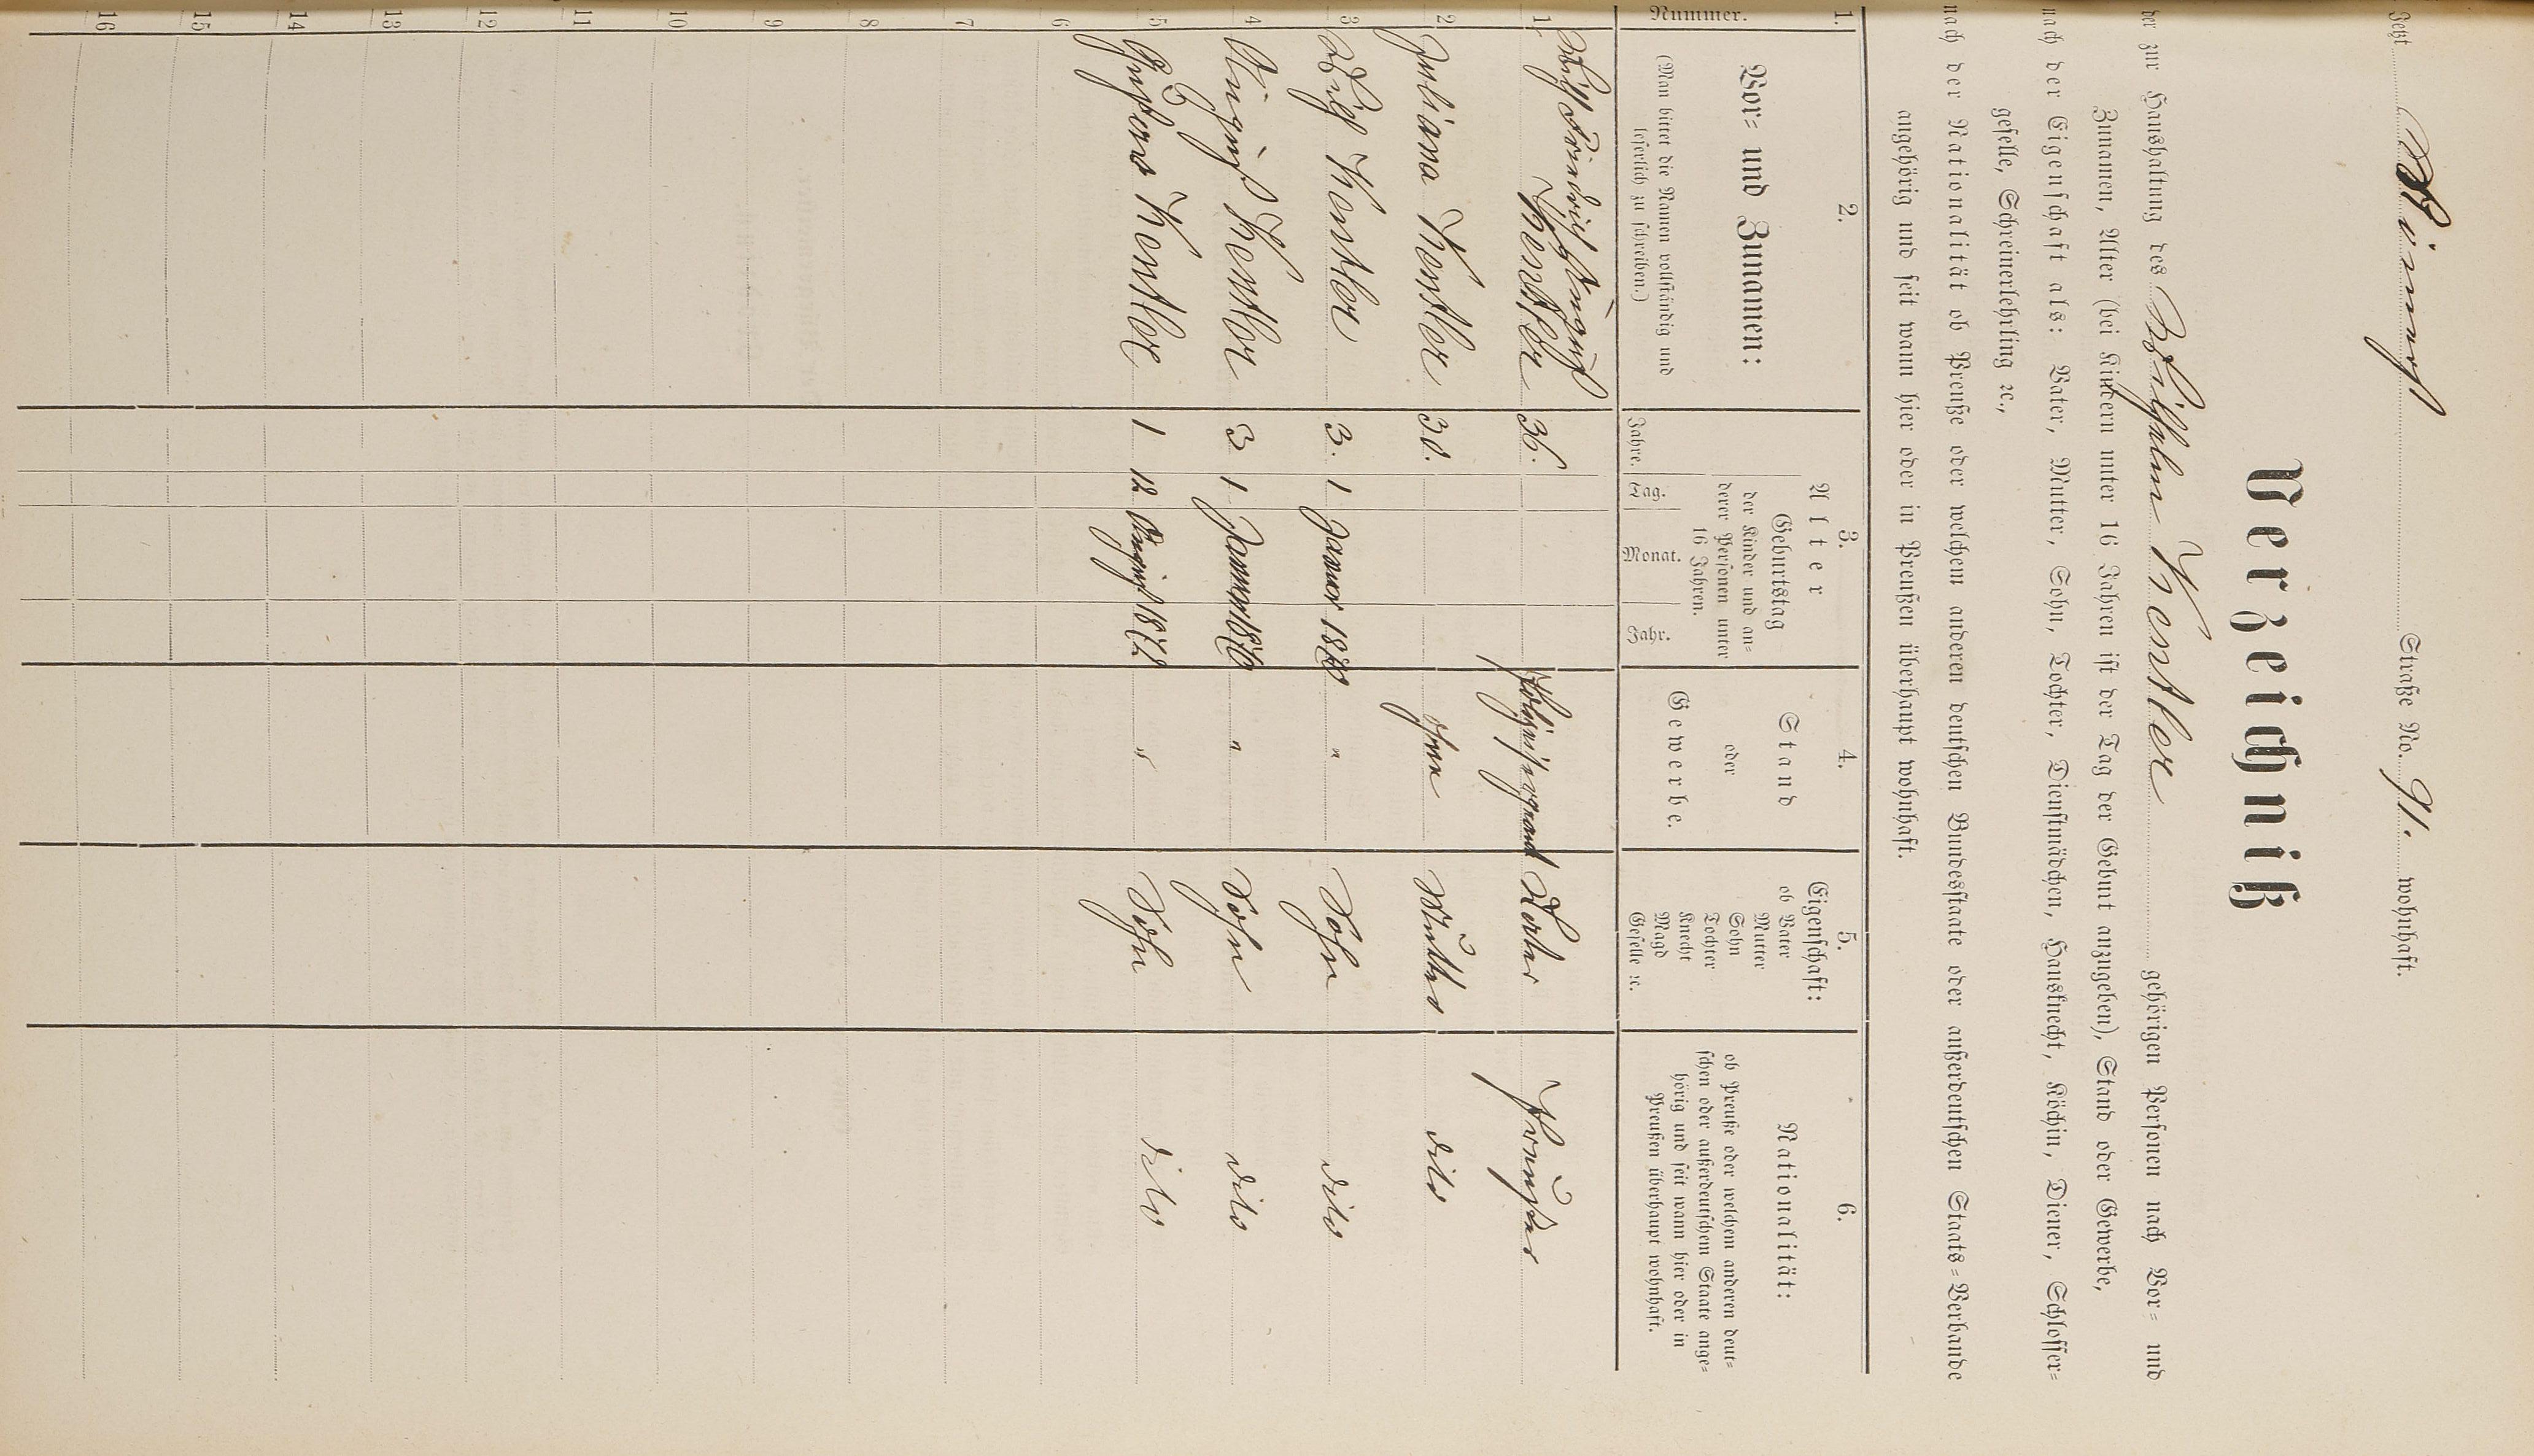 Jetzt Birnof Straße No. 91. wohnhaft.
Verzeichniß
der zur Haushaltung des Wilhelm Kentler gehörigen Personen nach Vor- und
Zunamen, Alter (bei Kindern unter 16 Jahren ist der Tag der Geburt anzugeben), Stand oder Gewerbe,
nach der Eigenschaft als: Vater, Mutter, Sohn, Tochter, Dienstmädchen, Hausknecht, Köchin, Diener, Schlosser-
geselle, Schreinerlehrling ꝛc.,
nach der Nationalität ob Preuße oder welchem anderen deutschen Bundesstaate oder außerdeutschen Staats-Verbande
angehörig und seit wann hier oder in Preußen überhaupt wohnhaft.
1. 2. 3. 4. 5. 6.
Nummer.
Vor- und Zunamen:
(Man bittet die Namen vollständig und
leserlich zu schreiben.)
Alter
Geburtstag
der Kinder und an-
derer Personen unter
16 Jahren.
Jahre. Tag. Monat. Jahr.
Stand
oder
Gewerbe.
Eigenschaft:
ob Vater
Mutter
Sohn
Tochter
Knecht
Magd
Geselle ꝛc.
Nationalität:
ob Preuße oder welchem anderen deut-
schen oder außerdeutschem Staate ange-
hörig und seit wann hier oder in
Preußen überhaupt wohnhaft.
1 Wilh Friedrich August Kentler 36. Vater Preußer
2 Juliana Kentler 30. ohne Mutter dito
3 Wilh Kentler 3. 1 Januar 1870 " Sohn dito
4 August Kentler 3 1 Januar 1870 " Sohn dito
5 Gustav Kentler 1 12 August 1872 " Sohn dito
6
7
8
9
10
11
12
13
14
15
16